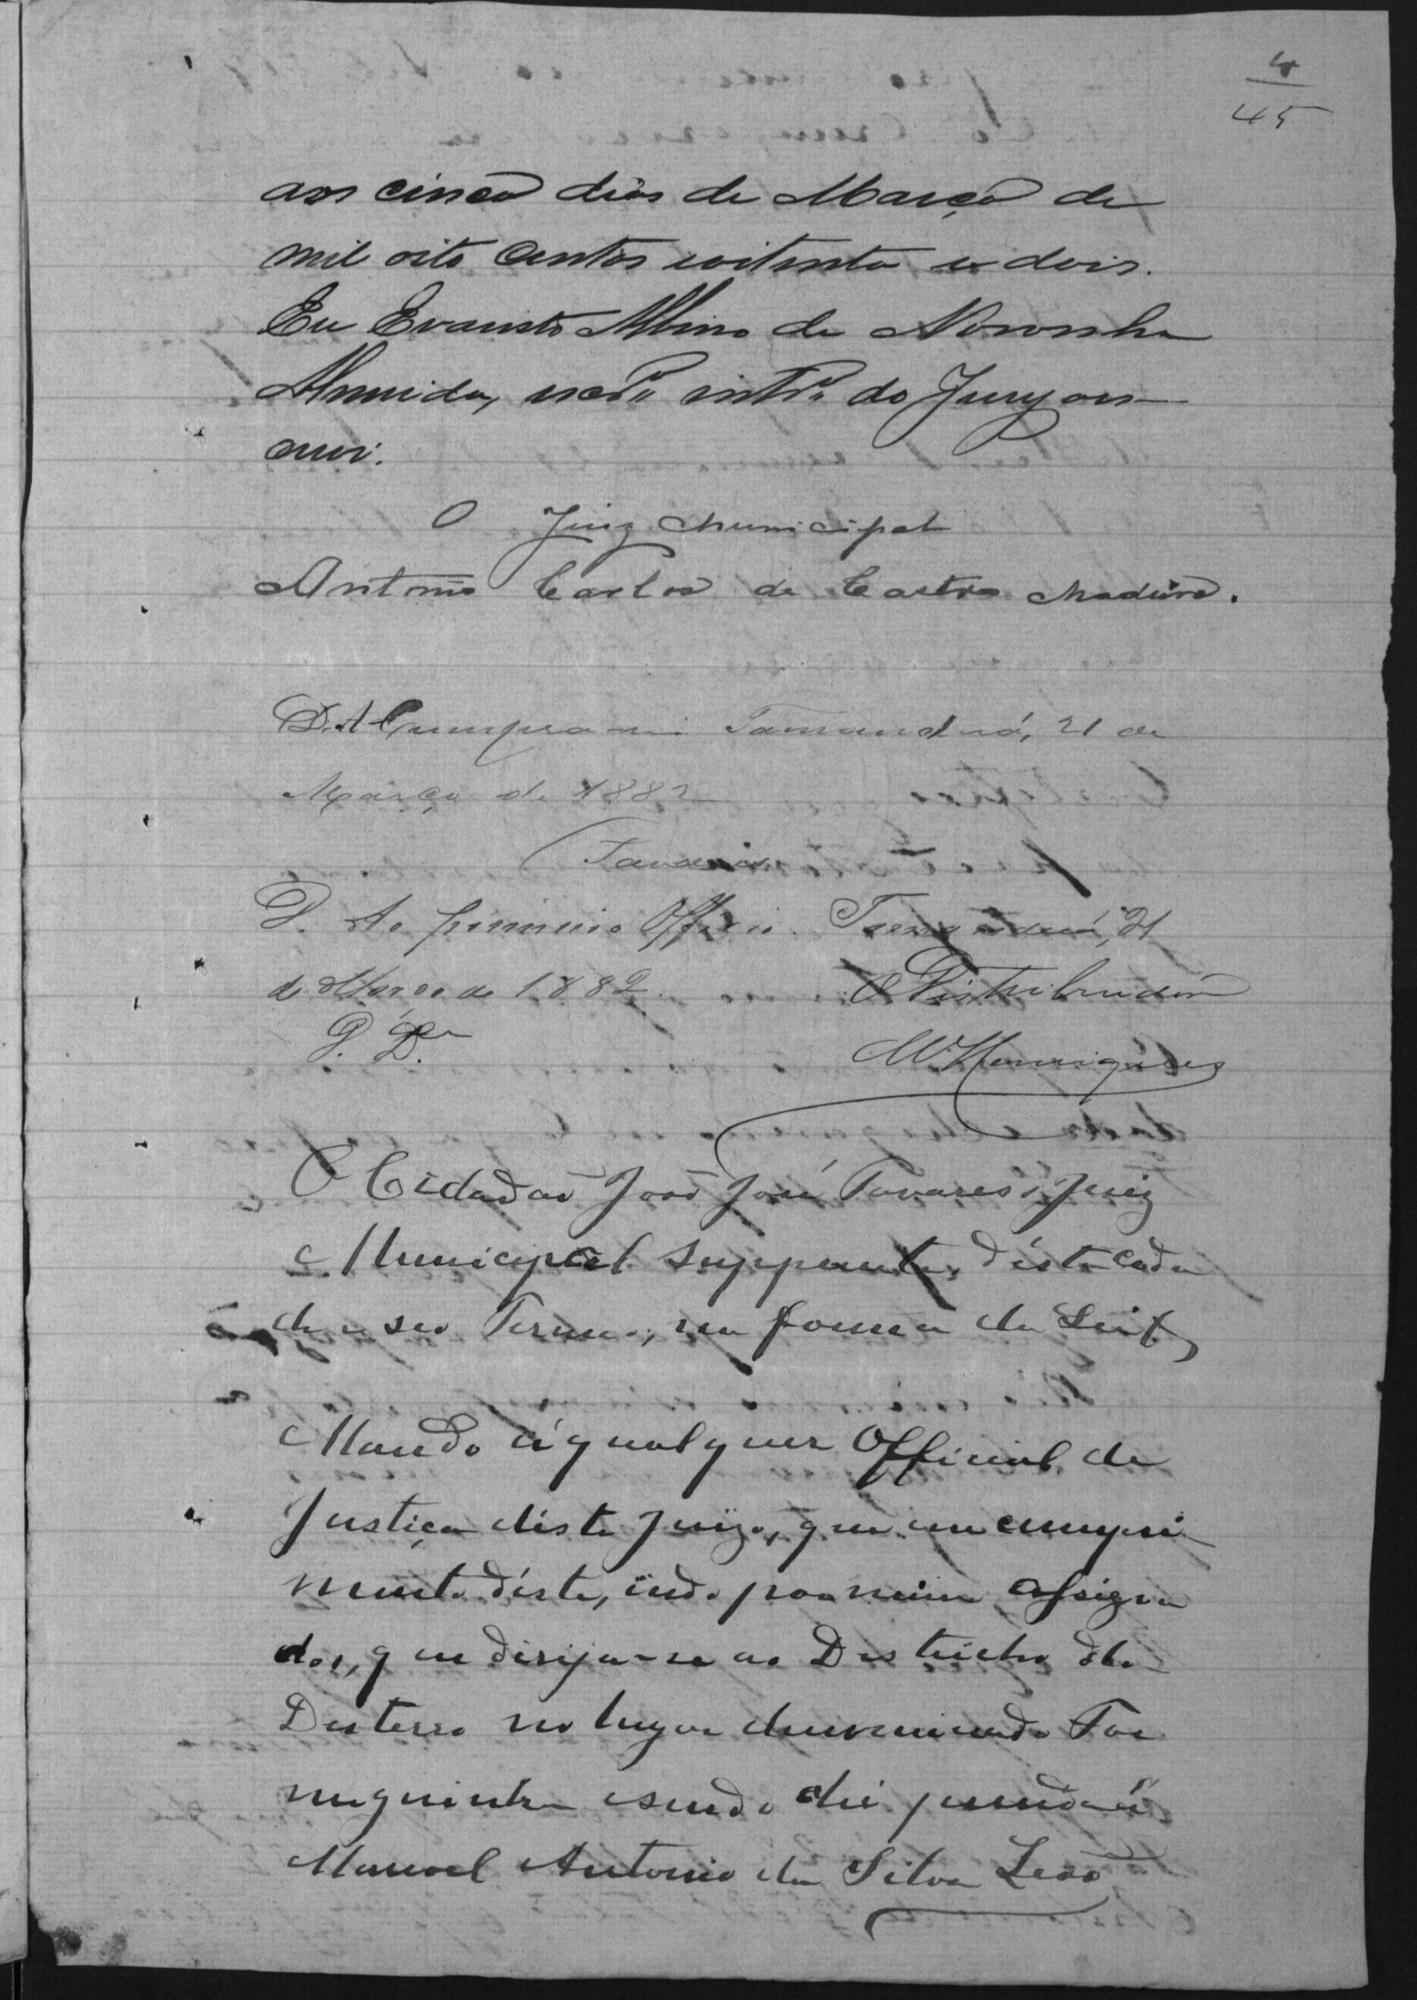 4
45
aos cinco dias de Março de
mil oito centos e oitenta e dois.
Eu Evaristo Albino de Noronha
Almeida, escrº intrº do Jury o es-
crevi.
O Juiz Municipal
Antonio Carlos de Castro Madeira.
D. A. Cumpra-se. Tamanduá, 21 de
Março de 1882
Tavares
D. Ao primeiro Officio. Tamanduá, 21
de Março de 1882. O Distribuidor
M. Henriques
O Cidadão João José José Tavares, Juiz
Municipal supplente, desta cidade
de e seo Termo, na forma da Lei &
Mando á qualquer Official de
Justiça deste Juizo, que em cumpri-
mento deste, indo por mim assigna
do, que dirija-se ao Districto do
Desterro no lugar denominado For
miguinha e sendo ahi prenda á
Manoel Antonio da Silva Leão